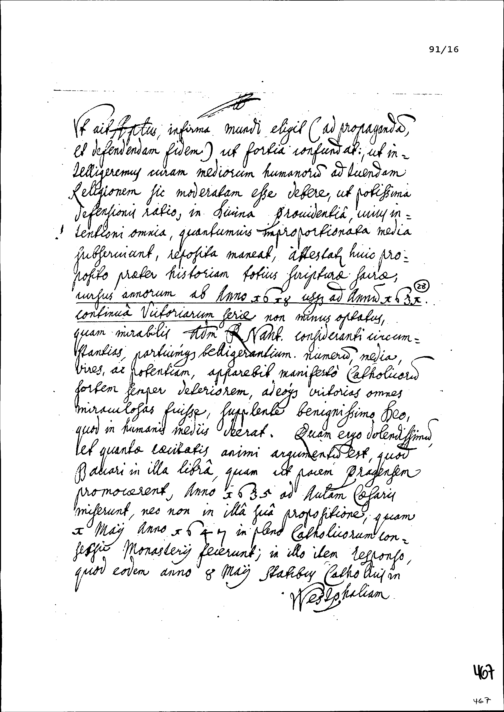 91/16
Ut ait Aptus, infirma mundi eligit (ad propaganda,
et defendendam fidem) ut fortia confundat; ut in=
telligeremus curam mediorum humanorū ad tuendam
Religionem sic moderatam esse debere, ut potissima
defensionis ratio, in Divina Providentiâ, cuius in=
tentioni omnia, quantumuis improportionata media
subseruiunt, reposita maneat, attestatur huic pro=
posito præter historiam totius scripturæ sacræ,
cursus annorum ab Anno 1618 usq ad Annū 163x. (28)
continuâ Victoriarum serie non minus optatus,
quam mirabilis consideranti circum=
stantias, partiumq belligerantium numerū, media,
vires, ac potentiam, apparebit manifestò Catholicorū
sortem semper deteriorem, adeoq victorias omnes
miraculosas fuisse, supplente benignissimo Deo,
quod in humanis mediis deerat. Quàm ergo dolendissimū,
et quanta cæcitatis animi argumentū est, quod
Bauari in illa libra, quam ut pacem Pragensem
promoverent, Anno 1635 ad Aulam Cæsaris
miserunt, nec non in illâ suâ propositione, quam
x Maij Anno 1647 in pleno Catholicorum con=
sessu Monasterij fecerunt; in illo item responso,
quod eodem anno 8 Maij statibus Catholicis in
Westphaliam
467
467